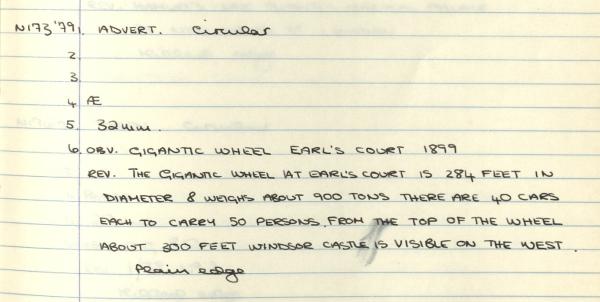 N173 '79 1. ADVERT. Circular
2.
3.
4. Æ
5. 32mm.
6. OBV. GIGANTIC WHEEL EARL'S COURT 1899
REV. THE GIGANTIC WHEEL AT EARL'S COURT IS 284 FEET IN
DIAMETER & WEIGHS ABOUT 900 TONS THERE ARE 40 CARS
EACH TO CARRY 50 PERSONS. FROM THE TOP OF THE WHEEL
ABOUT 300 FEET WINDSOR CASTLE IS VISIBLE ON THE WEST.
Plain edge